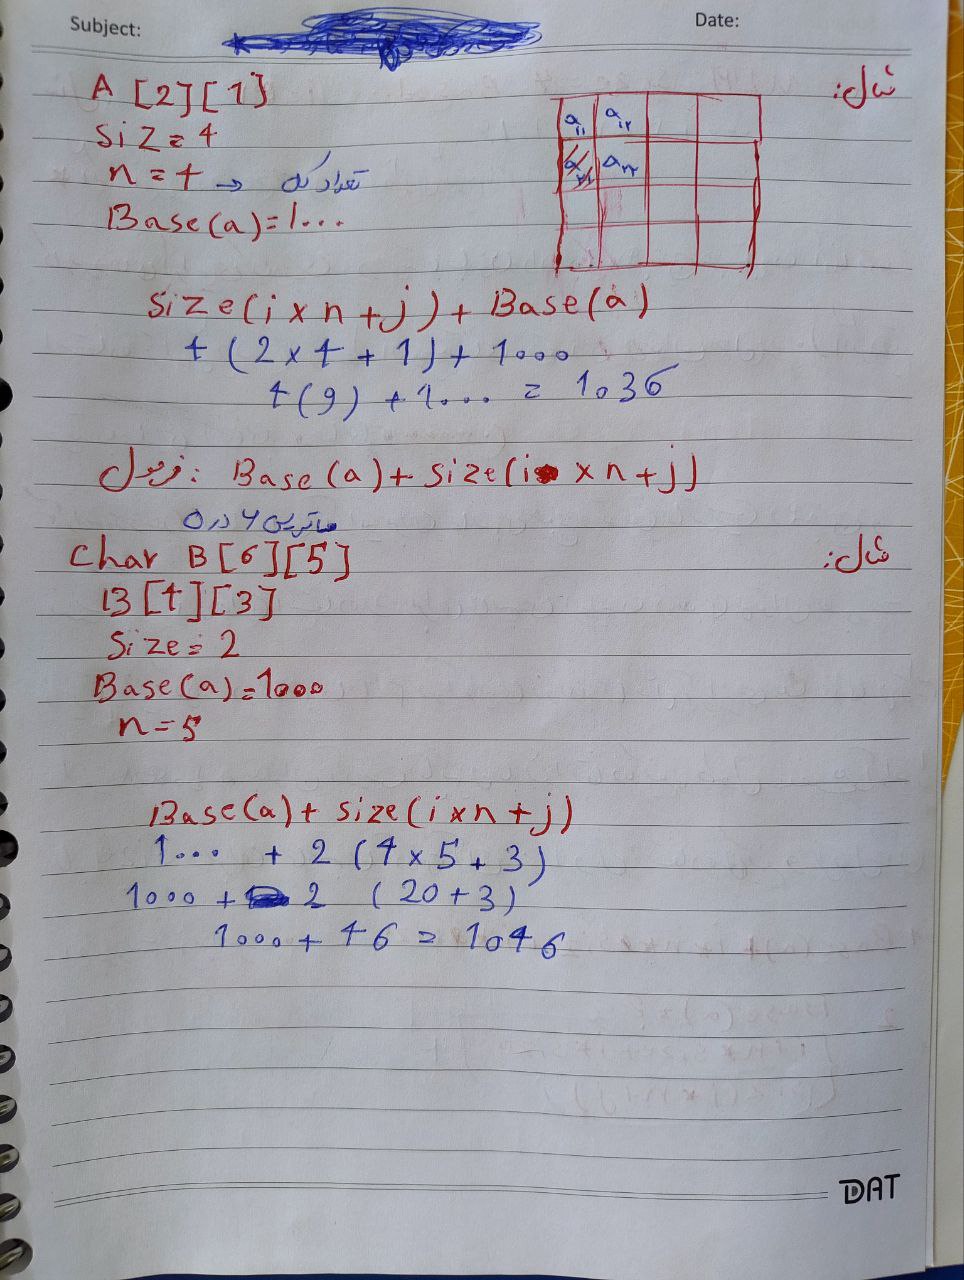 Subject:
Date:
مثال:
A [2][1]
Siz = 4
n = 4 → تعداد
Base(a)=1000
a₁₁ a₁₂
a₂₂
Size(i × n + j) + Base(a)
4 (2 × 4 + 1) + 1000
4(9) + 1000 = 1036
فرمول: Base(a) + Size(i × n + j)
ماتریس ۶ در ۵
مثال:
Char B[6][5]
B[4][3]
Size = 2
Base(a)=1000
n = 5
Base(a) + size(i × n + j)
1000 + 2 (4 × 5 + 3)
1000 + 2 (20 + 3)
1000 + 46 = 1046
DAT